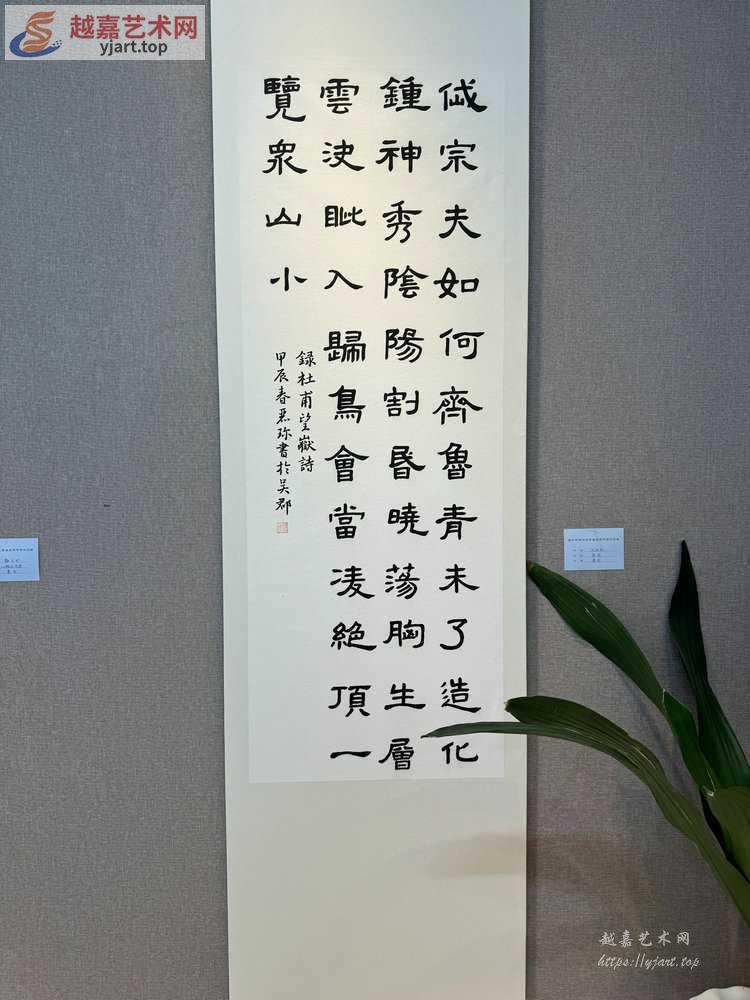 越嘉艺术网
yjart.top
岱宗夫如何齊魯青未了造化
鍾神秀陰陽割昬曉蕩胸生層
雲決眦入歸鳥會當凌絕頂一
覽衆山小
録杜甫望嶽詩
甲辰春珎書於吴郡
越嘉艺术网
https://yjart.top